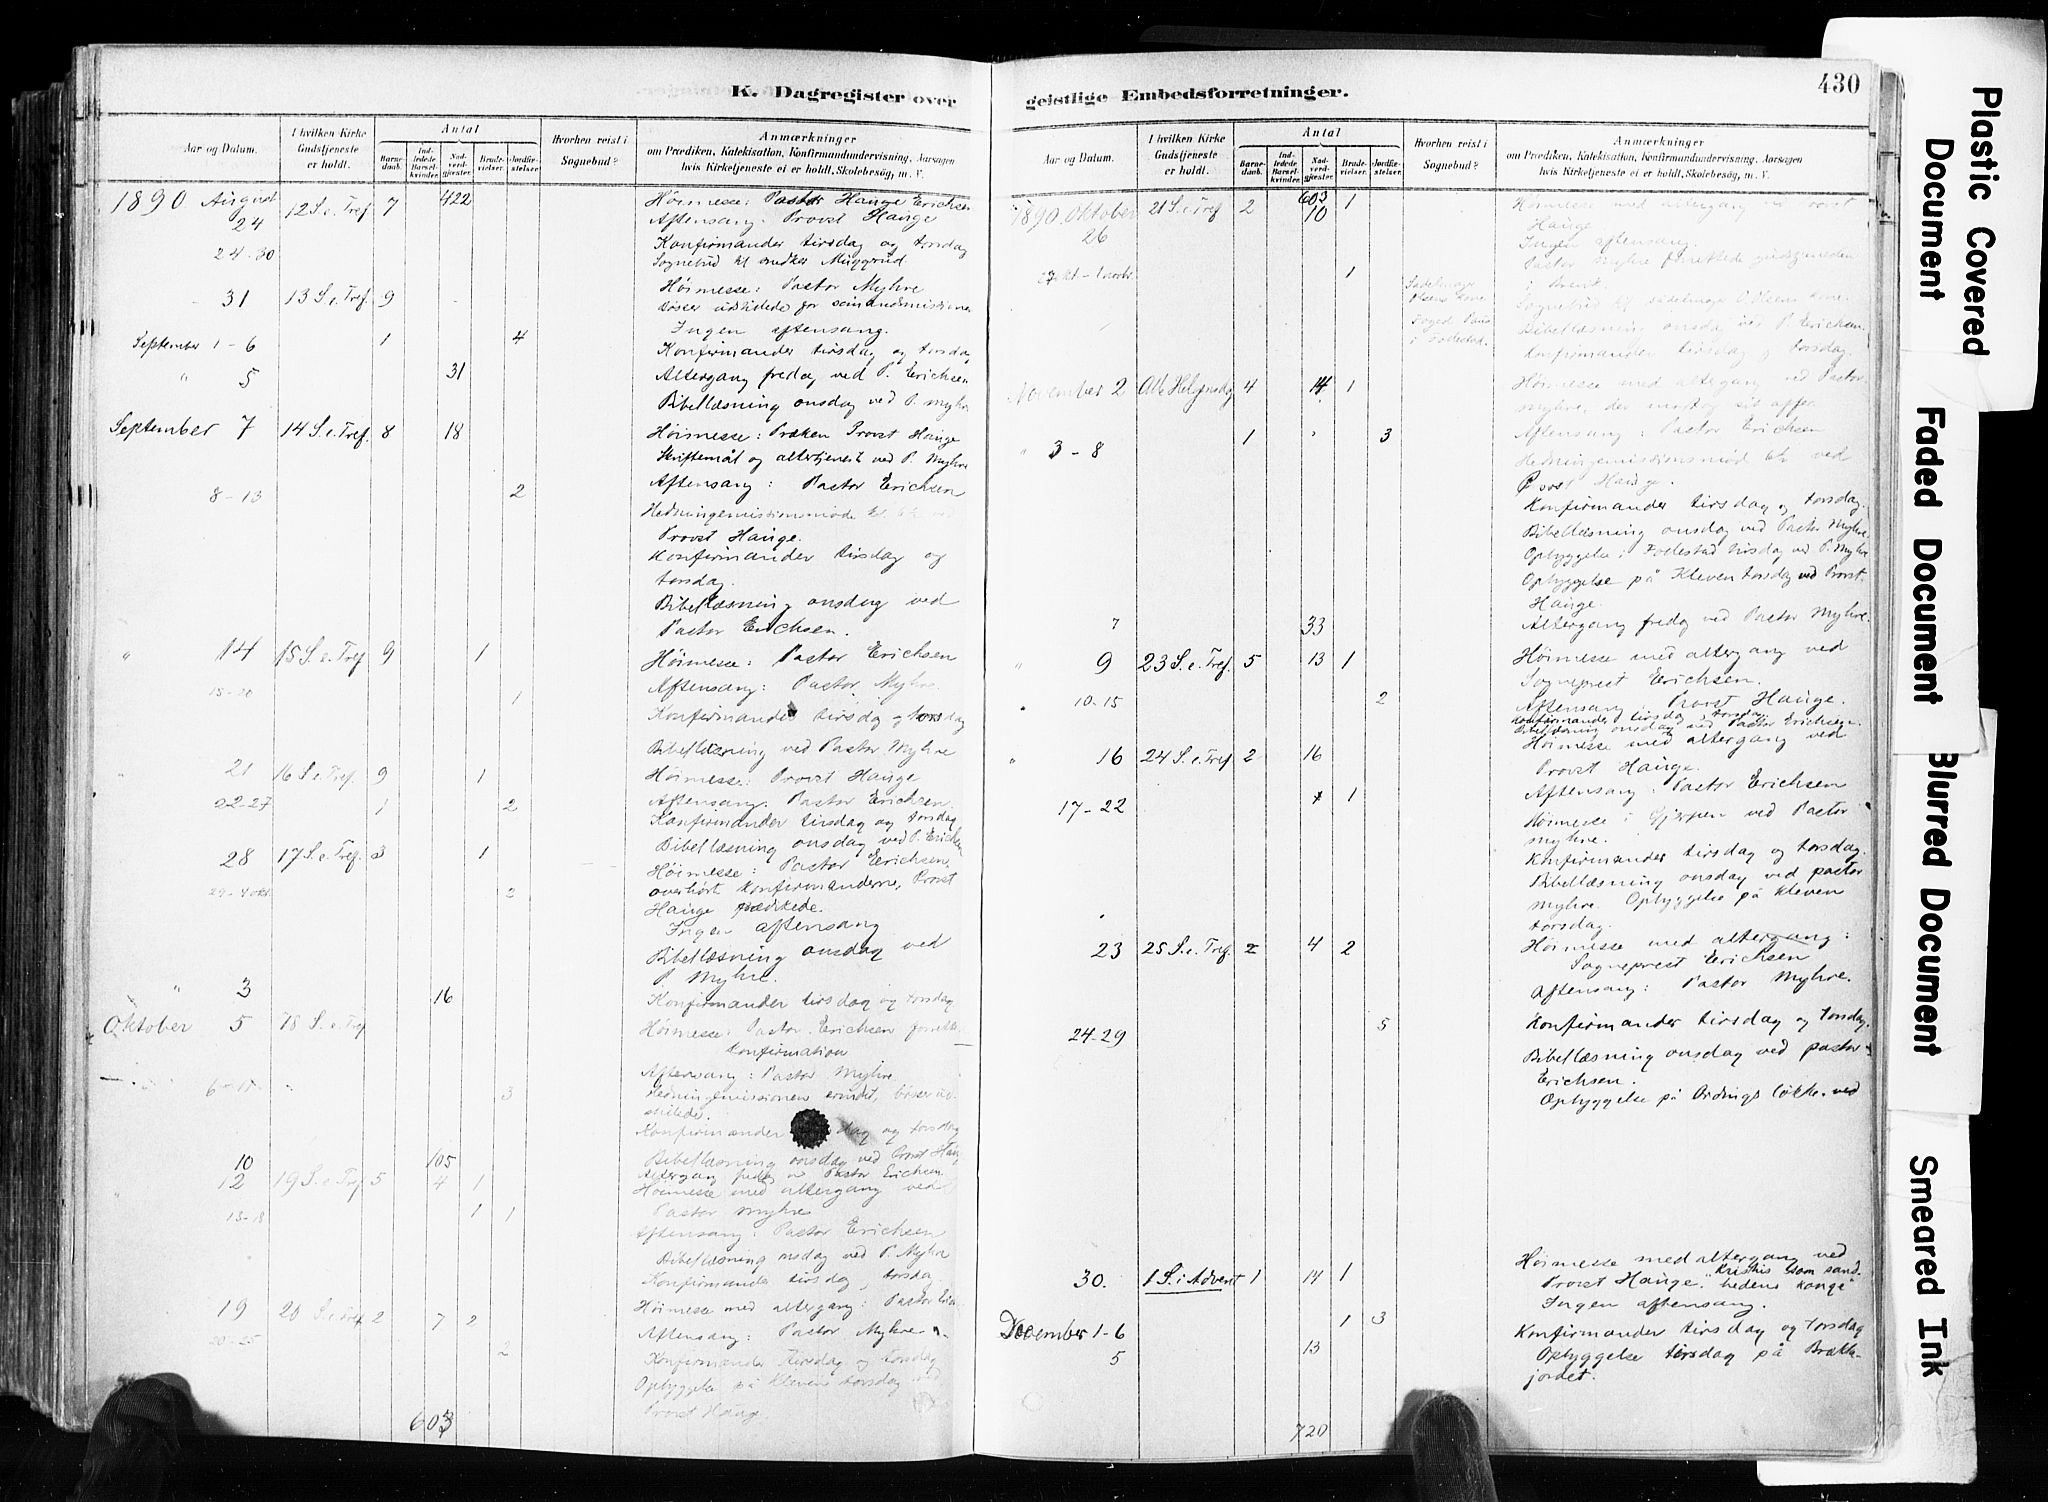 K. Dagregister over
Aar og Datum.
I hvilken Kirke Gudstjeneste er holdt.
Antal
Barnedaab.
Indledede Barselkvinder.
Nadverdgjester.
Brudevielser.
Jordfæstelser.
Hvorhen reist i Sognebud?
Anmærkninger
om Prædiken, Katekisation, Konfirmandundervisning, Aarsagen
hvis Kirketjeneste ei er holdt, Skolebesøg, m. V.
1890 August 24 12 S. e. Tref. 7 422 Høimesse: Pastor Erichsen
Aftensang: Provst Hauge
24-30 Konfirmander tirsdag og torsdag
Sognebud til
31 13 S. e. Tref. 9 Høimesse: Pastor Myhre
Ingen aftensang.
September 1-6 1 4 Konfirmander tirsdag og torsdag
" 5 31 Altergang fredag ved P. Erichsen
Bibellæsning onsdag ved P. Myhre
September 7 14 S. e. Tref. 8 18 Høimesse: Præken Provst Hauge
Skriftemål og altertjeneste ved P. Myhre
Aftensang: Pastor Erichsen
8-13 2 Hedningemissionsmøde
Provst Hauge.
Konfirmander tirsdag og
torsdag.
Bibellæsning onsdag ved
Pastor Erichsen.
" 14 15 S. e. Tref. 9 1 Høimesse: Pastor Erichsen
Aftensang: Pastor Myhre.
15-20 1 Konfirmander tirsdag og torsdag
Bibellæsning ved Pastor Myhre
" 21 16 S. e. Tref. 9 1 Høimesse: Provst Hauge
Aftensang: Pastor Erichsen.
22-27 1 2 Konfirmander tirsdag og torsdag
Bibellæsning onsdag ved P. Erichsen
28 17 S. e. Tref. 3 1 Høimesse: Pastor Erichsen
overhørt konfirmanderne, Provst
29-4 okt. 2 Hauge prædikede.
Ingen aftensang
Bibellæsning onsdag ved
P. Myhre.
" 3 16 Konfirmander tirsdag og torsdag
Oktober 5 18 S. e. Tref. Høimesse: Pastor Erichsen
Konfirmation
Aftensang: Pastor Myhre.
6-11 3
Konfirmander dag og torsdag
10 105 Bibellæsning onsdag ved Provst Hauge
Altergang fredag v. Pastor Erichsen
" 12 19 S. e. Tref. 5 4 1 Høimesse med altergang ved
13-18 1 1 Pastor Myhre
Aftensang: Pastor Erichsen
Bibellæsning onsdag ved P. Myhre
Konfirmander tirsdag, torsdag.
19 20 S. e. Tref. 2 7 2 Høimesse med altergang: Pastor
20-25 2 Aftensang: Pastor Myhre
Konfirmander tirsdag og torsdag
Opbyggelse på Kleven torsdag ved
Provst Hauge
603
geistlige Embedsforretninger.
430
Aar og Datum.
I hvilken Kirke Gudstjeneste er holdt.
Antal
Barnedaab.
Indledede Barselkvinder.
Nadverdgjester.
Brudevielser.
Jordfæstelser.
Hvorhen reist i Sognebud?
Anmærkninger
om Prædiken, Katekisation, Konfirmandundervisning, Aarsagen
hvis Kirketjeneste ei er holdt, Skolebesøg, m. V.
1890. Oktober 26 21 S. e. Tref 2 603 10 1 Høimesse med altergang ved Provst
Hauge
Ingen aftensang.
Pastor Myhre
1
Bibellæsning onsdag ved P. Erichsen
Konfirmander tirsdag, torsdag.
November 2 Alle Helgensdag 4 14 1 Høimesse med altergang ved Pastor
Myhre,
Aftensang: Pastor Erichsen
" 3-8 1 3 ved
Provst Hauge.
Konfirmander tirsdag og torsdag.
Bibellæsning onsdag ved Pastor Myhre.
Opbyggelse i tirsdag ved P. Myhre
Opbyggelse på Kleven torsdag ved Provst
Hauge.
7 33 Altergang fredag ved Pastor Myhre.
" 9 23 S. e. Tref. 5 13 1 Høimesse med altergang ved
Sogneprest Erichsen.
10-15 2 Aftensang Provst Hauge.
Konfirmander tirsdag, torsdag.
Bibellæsning onsdag ved Pastor Erichsen.
" 16 24 S. e. Tref 2 16 Høimesse med altergang ved
Provst Hauge.
Aftensang: Pastor Erichsen
17-22 1 Høimesse i Gjerpen ved Pastor
Myhre.
Konfirmander tirsdag og torsdag.
Bibellæsning onsdag ved pastor
Myhre. Opbyggelse på Kleven
torsdag.
23 25 S. e. Tref. 2 4 2 Høimesse med altergang:
Sogneprest Erichsen
Aftensang: Pastor Myhre.
24-29 5 Konfirmander tirsdag og torsdag.
Bibellæsning onsdag ved pastor
Erichsen.
Opbyggelse på ved
30. 1 S. i Advent 1 14 1 Høimesse med altergang ved
Provst Hauge. "Kristus som sandhedens konge"
Ingen aftensang.
December 1-6 1 3 Konfirmander tirsdag og torsdag
5 13 Opbyggelse tirsdag på
jordet.
720
Plastic Covered Document
Faded Document
Blurred Document
Smeared Ink